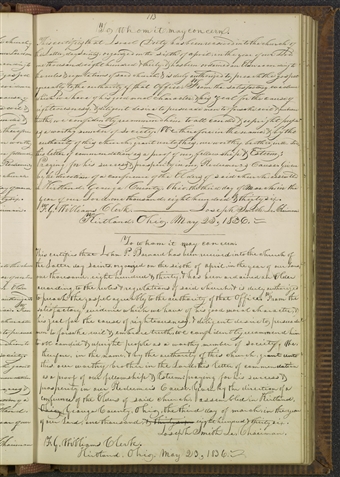 113
To whom it may concern.
This certifies that
has been received into the church of
the Latter day Saints organized on the sixth of April in the year of our Lord
one thousand eight hundred & thirty & has been ordained an Elder according to
the rules & regulations of said church & is duly authorized to preach the gospel
equally to the authority of that Office. From the satisfactory evidence
which we have of his good moral character & his zeal for the cause
of righteousness & diligent desire to persuade men to forsake evil & embrace
truth we confidently recommend him to all candid & upright people
as a worthy member of society. We therefore in the name & by the
authority of this church grant unto this our worthy brother in the Lord
this letter of commendation as a proof of our fellowship & Esteem:
Praying for his success & prosperity in our Redeemer's Cause. Given
by the direction of a conference of the Elders of said church assembled
in Kirtland Geauga County Ohio the third day of March in the
year of our Lord one thousand eight hundred & thirty six.
F. G. Williams Clerk. Joseph Smith Jr. Chairman
Kirtland, Ohio, May 23, 1836.
To whom it may concern
This certifies that John P. has been received into the church of
the Latter day Saints organized on the sixth of April in the year of our Lord
one thousand eight hundred & thirty & has been ordained an Elder
according to the rules & regulations of said church & is duly authorized
to preach the gospel equally to the authority of that Office. From the
satisfactory evidence which we have of his good moral character &
his zeal for the cause of righteousness & diligent desire to persuade
men to forsake evil & embrace truth we confidently recommend him
to all candid & upright people as a worthy member of society. We
therefore in the name & by the authority of this church grant unto
this our worthy brother in the Lord this letter of commendation
as a proof of our fellowship & Esteem: praying for his success &
prosperity in our Redeemer's Cause. Given by the direction of a
conference of the Elders of said church assembled in Kirtland
Geauga County, Ohio, the third day of March in the year
of our Lord one thousand eight hundred & thirty six.
Joseph Smith Jr. Chairman
F. G. Williams Clerk.
Kirtland, Ohio, May 23, 1836.